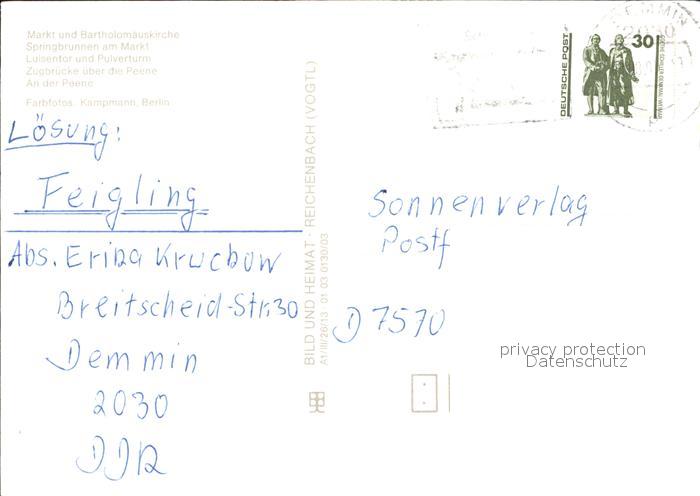 Markt und Bartholomäuskirche
Springbrunnen am Markt
Luisentor und Pulverturm
Zugbrücke über die Peene
An der Peene
Farbfotos: Kampmann, Berlin
Lösung:
Feigling
Abs. Erika Kruchow
Breitscheid-Str. 30
Demmin
2030
DDR
BILD UND HEIMAT · REICHENBACH (VOGTL)
A1/III/26/13 01 03 0130/03
DEMMIN
2030
DEUTSCHE POST
30
Sonnenverlag
Postf
D 7570
privacy protection
Datenschutz